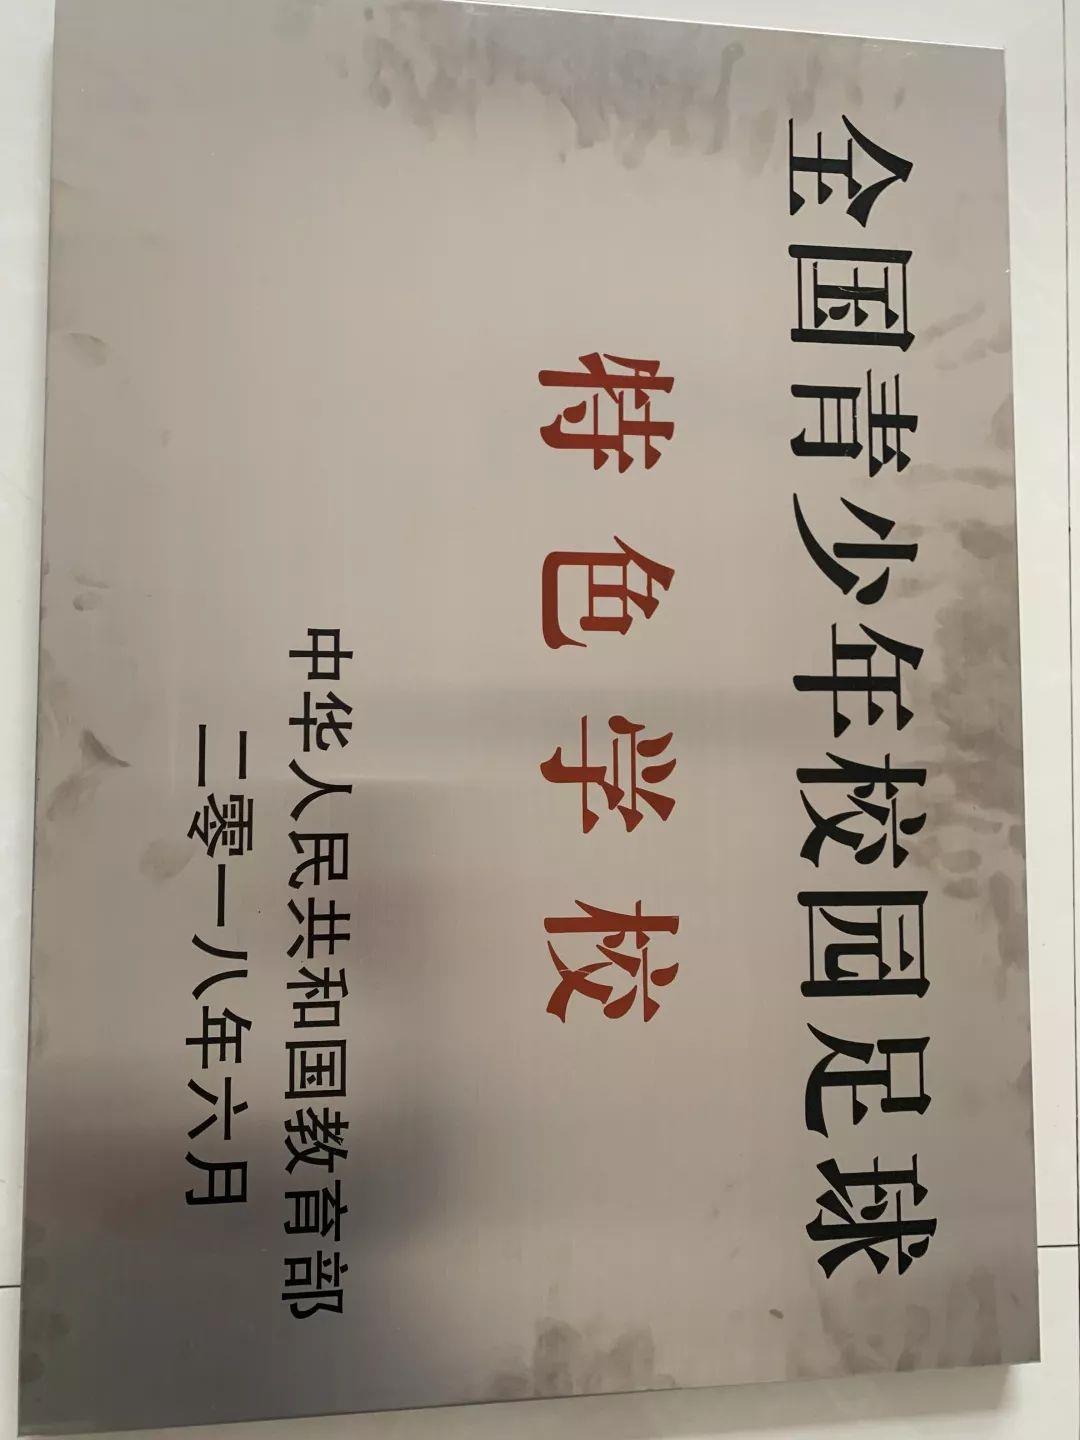 全国青少年校园足球
特色学校
中华人民共和国教育部
二零一八年六月